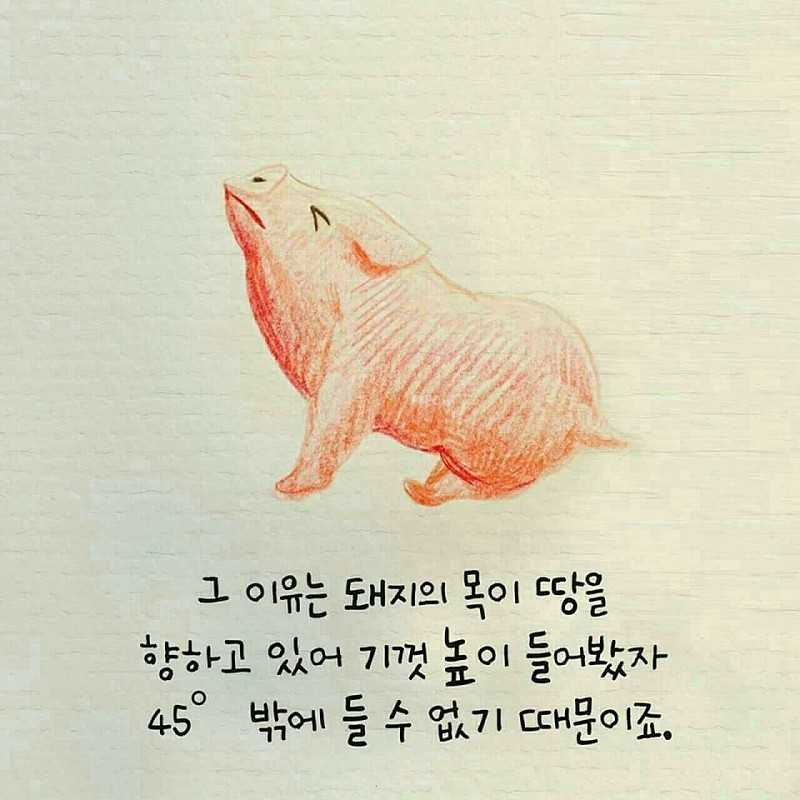 그 이유는 돼지의 목이 땅을
향하고 있어 기껏 높이 들어봤자
45° 밖에 들 수 없기 때문이죠.